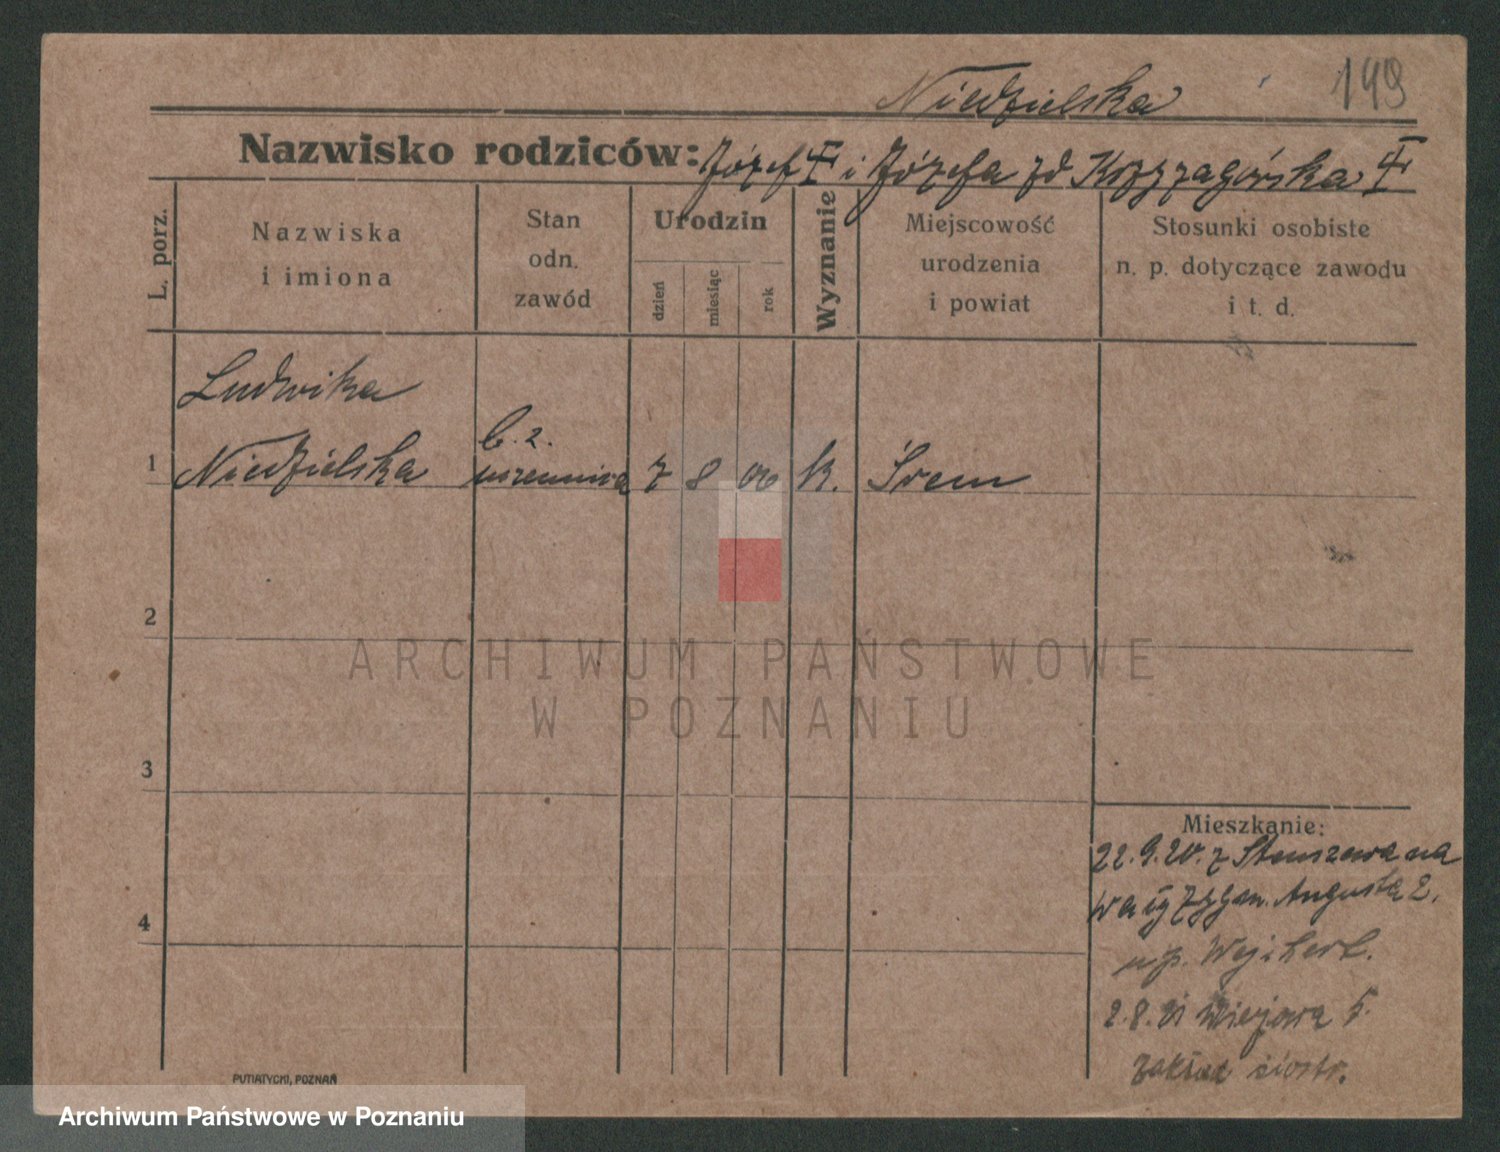 Niedzielska 149
Nazwisko rodziców: Józef i Józefa zd
L. porz.
Nazwiska
i imiona
Stan
odn.
zawód
Urodzin
dzień
miesiąc
rok
Wyznanie
Miejscowość
urodzenia
i powiat
Stosunki osobiste
n. p. dotyczące zawodu
i t. d.
Ludwika
1 Niedzielska
b. z.
uczennica 7 8 00 k. Śrem
2
3
4
Mieszkanie:
22.9.20. z Stenszewa na
Wały Zygm. Augusta 2.
u p. Wejchert.
2.8.21
Zakład siostr.
PUTIATYCKI, POZNAŃ
ARCHIWUM PAŃSTWOWE
W POZNANIU
Archiwum Państwowe w Poznaniu